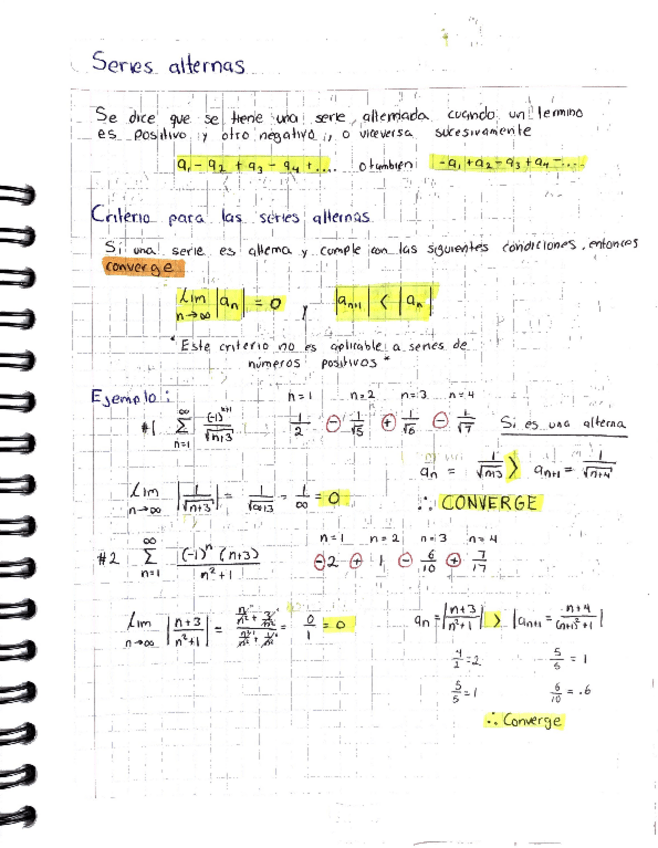 Series alternas
Se dice que se tiene una serie alternada cuando un termino
es positivo y otro negativo, o viceversa sucesivamente
a₁ - a₂ + a₃ - a₄ + .... o tambien -a₁ + a₂ - a₃ + a₄ - ....
Criterio para las series alternas
Si una serie es alterna y cumple con las siguientes condiciones, entonces
converge
Lim n→∞ |aₙ| = 0 y |aₙ₊₁| < |aₙ|
* Este criterio no es aplicable a series de
números positivos *
Ejemplo: n=1 n=2 n=3 n=4
#1 ∞ Σ n=1 (-1)ⁿ⁺¹/√n+3 1/2 - 1/√5 + 1/√6 - 1/√7 Si es una alterna
aₙ = 1/√n+3 > aₙ₊₁ = 1/√n+4
Lim n→∞ |1/√n+3| = 1/√∞+3 = 1/∞ = 0 ∴ CONVERGE
n=1 n=2 n=3 n=4
#2 ∞ Σ n=1 (-1)ⁿ (n+3)/n²+1 -2 + 1 - 6/10 + 7/17
Lim n→∞ |n+3/n²+1| = n/n² + 3/n² / n²/n² + 1/n² = 0/1 = 0 aₙ = |n+3/n²+1| > |aₙ₊₁ = n+4/(n+1)²+1|
4/2 = 2 5/5 = 1
5/5 = 1 6/10 = .6
∴ Converge